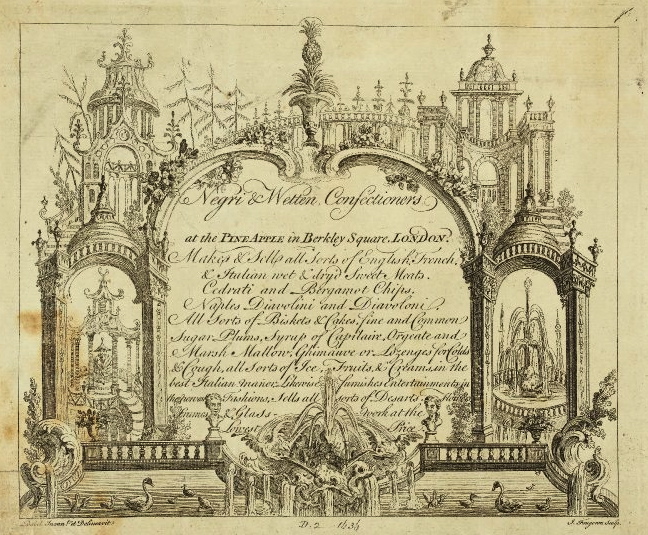 Negri & Wetten, Confectioners
at the PINE APPLE in Berkley Square, LONDON.
Makes & Sells all Sorts of English, French,
& Italian wet & dry'd Sweet Meats.
Cedrati and Bergamot Chips,
Naples Diavolini and Diavoloni,
All Sorts of Biskets & Cakes, fine and Common
Sugar Plums, Syrup of Capilaire, Orgeate and
Marsh Mallow, Ghimauve or Lozenges for Colds
& Cough, all Sorts of Ice, Fruits, & Creams, in the
best Italian maner, Likewise furnishes Entertainments in
Fashions, Sells all Sorts of Desarts
& Glass work at the
Lowest Price
Delineavit
D. 2 1434
Sculp.